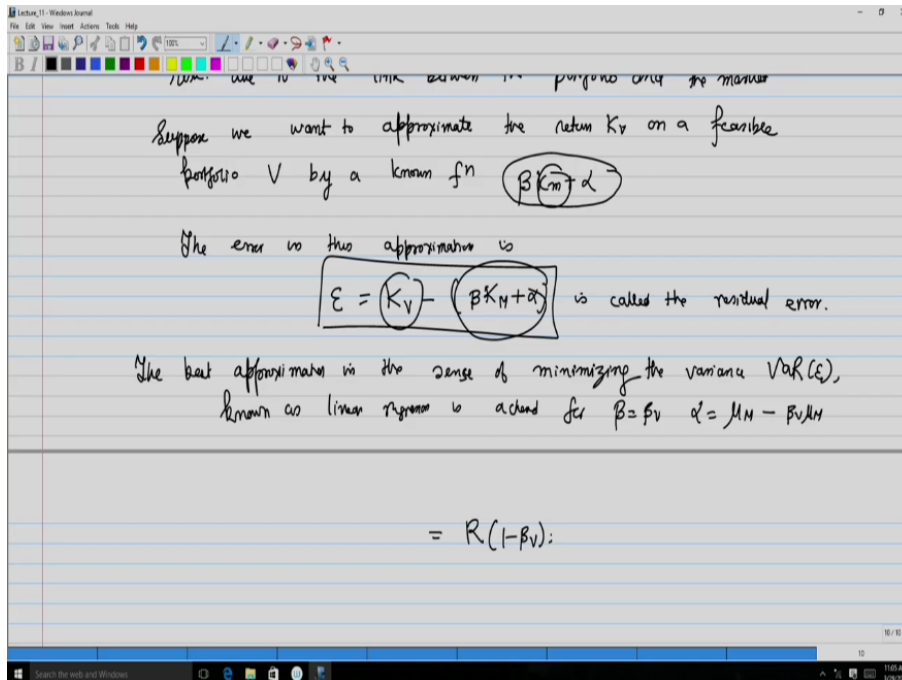 Lecture_11 - Windows Journal
File Edit View Insert Actions Tools Help
100%
B I
due to the link between the portfolio and the market
Suppose we want to approximate the return K_V on a feasible
portfolio V by a known fn β K_m + α
The error in this approximation is
ε = K_V - (β K_M + α) is called the residual error.
The best approximation in the sense of minimizing the variance VaR(ε),
known as linear regression is achieved for β = β_V α = μ_M - β_V μ_M
= R(1-β_V).
10 / 10
10
Search the web and Windows
11:05 A